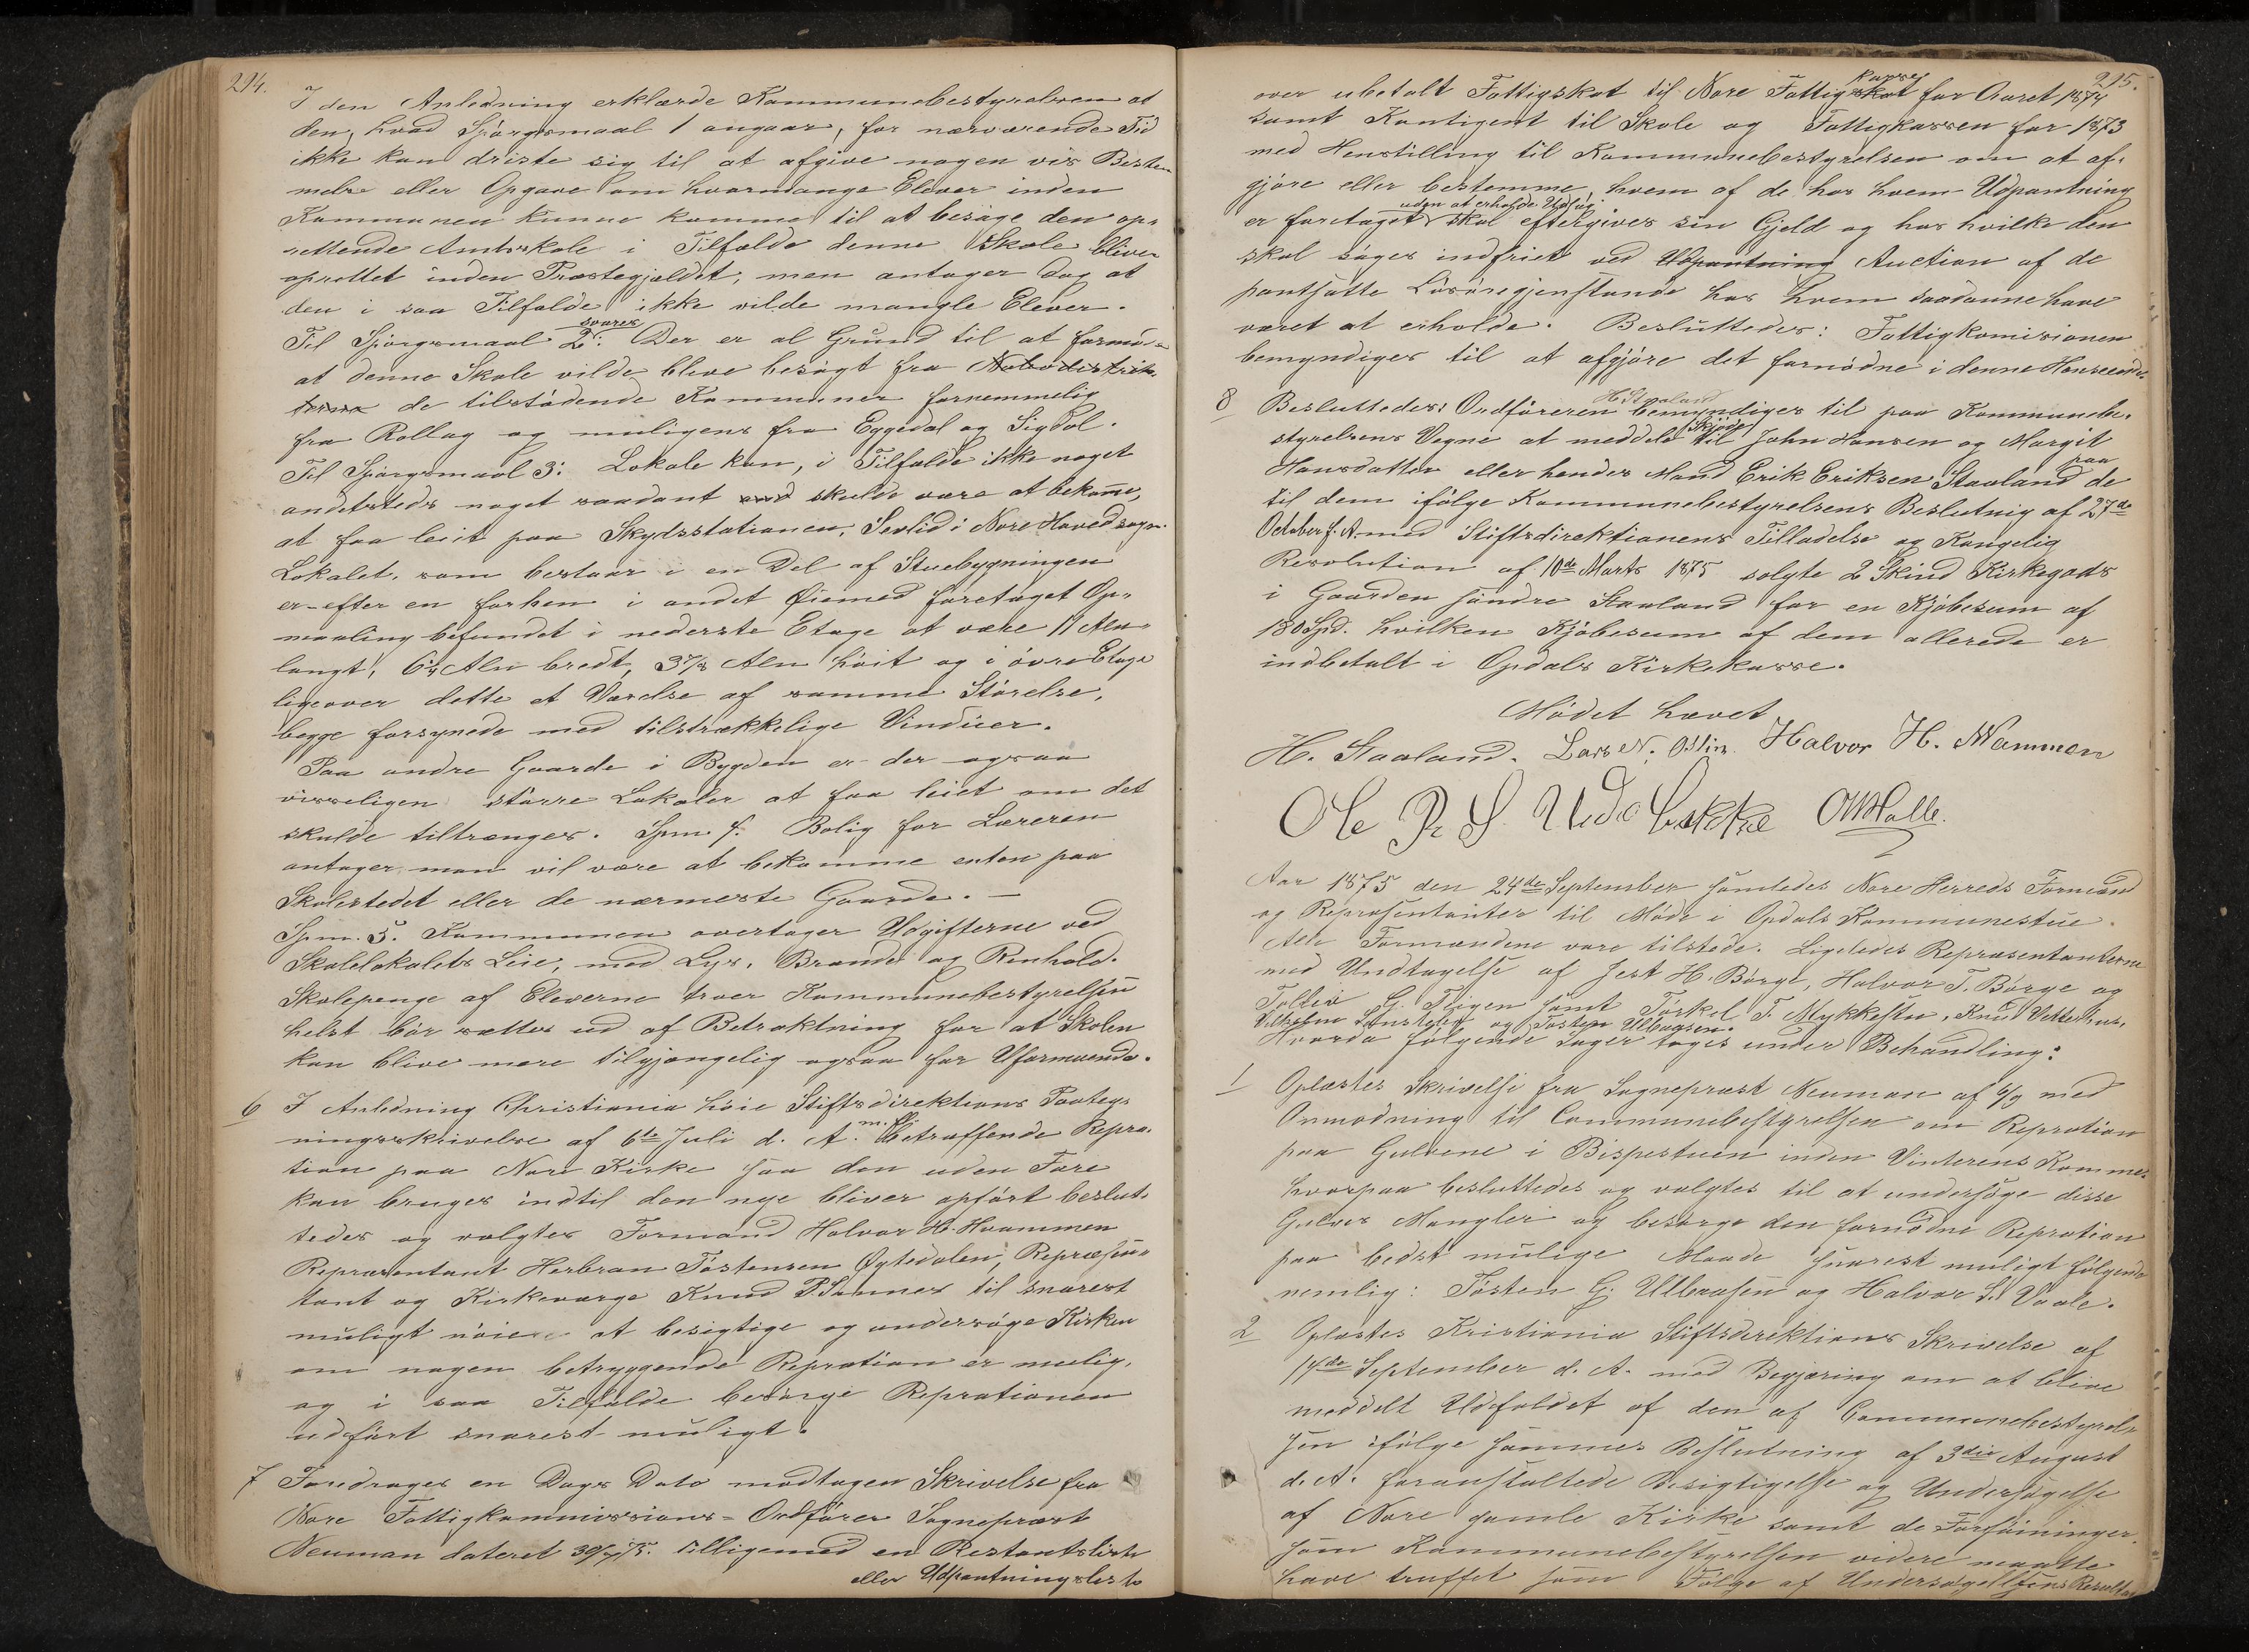 294.
I den Anledning erklærde Kommunebestyrelsen at
den, hvad Spørgsmaal 1 angaar, for nærværende Tid
ikke kan driste sig til at afgive nogen vis Bestem
melse eller Opgave om hvormange Elever inden
Kommunen kunne komme til at besøge den op-
rettende Amtsskole i Tilfælde denne Skole bliver
oprettet inden Præstegjældet; men antager dog at
den i saa Tilfælde ikke vilde mangle Elever.
Til Spørgsmaal 2: svares Der er al Grund til at formo-
at denne Skole vilde blive besøgt fra Nabodistrik
terne de tilstødende Kommuner fornemmelig
fra Rollag og muligens fra Eggedal og Sigdal.
Til Spørgsmaal 3: Lokale kan, i Tilfælde ikke noget
andetsteds noget saadant end skulde være at bekome,
at faa leiet paa Skydsstationen, Sevlid i Nore Hovedsogn.
Lokalet, som bestaar i en Del af Stuebygningen
er efter en forhen i andet Øiemed foretaget Op-
maaling befundet i nederste Etage at være 11 Alen
langt, 6½ Alen bredt, 3 7/8 Alen høit og i øvre Etage
ligeover dette et Værelse af samme Størelse,
begge forsynede med tilstrækkelige Vinduer.
Paa andre Gaarde i Bygden er der ogsaa
visseligen større Lokaler at faa leiet om det
skulde tiltrænges. Spm. 4. Bolig for Læreren
antager man vil være at bekomme enten paa
Skolestedet eller de nærmeste Gaarde. —
Spm. 5. Kommunen overtager Udgifterne ved
Skolelokalets Leie, med Lys, Brænde og Renhold.
Skolepenge af Eleverne troer Kommunebestyrelsen
helst bør sættes ud af Betraktning for at Skolen
kan blive mere tilgjængelig ogsaa for Uformuende.
6 I Anledning Christiania høie Stiftsdirektions Paateg-
ningsskrivelse af 6te Juli d. A. m. fl. betræffende Repra-
tion paa Nore Kirke saa den uden Fare
kan bruges indtil den nye bliver opført beslut-
tedes og valgtes Formand Halvor H. Hvammen
Repræsentant Herbran Tostensen Øgtedalen, Repræsen-
tant og Kirkeværge Knud P. Sønnes til snarest
muligt nøiere at besigtige og undersøge Kirken
om nogen betryggende Repration er mulig,
og i saa Tilfælde besørge Reprationen
udført snarest muligt.
7 Foredroges en Dags Dato modtagen Skrivelse fra
Nore Fattigkommissions-Ordfører Sogneprest
Neuman dateret 30/7 75. tilligemed en Restantsliste
eller Udpantningsliste
295.
over ubetalt Fattigskat til Nore Fattigskat kasse for Aaret 1874
samt Kontigent til Skole og Fattigkassen for 1873
med Henstilling til Kommunebestyrelsen om at af-
gjøre eller bestemme, hvem af de hos hvem Udpantning
er foretaget uden at erholde Udlæg skal eftergives sin Gjeld og hos hvilke den
skal søges indfriet ved Udpantning Auction af de
pantsatte Løsøregjenstande hos hvem saadanne have
været at erholde. Besluttedes: Fattigkomisionen
bemyndiges til at afgjøre det fornødne i denne Henseende.
8 Besluttedes: Ordføreren H. Staaland bemyndiges til paa Kommunebe-
styrelsens Vegne at meddele Skjøde til John Hansen og Margit
Hansdatter eller hendes Mand Erik Eriksen Staaland paa de
til dem ifølge Kommunebestyrelsens Beslutnig af 27de
October f. A. med Stiftsdirektionens Tilladelse og Kongelig
Resolution af 10de Marts 1875 solgte 2 Skind Kirkegods
i Gaarden søndre Staaland for en Kjøbesum af
180 Spd. hvilken Kjøbesum af dem allerede er
indbetalt i Opdals Kirkekasse.
Mødet hævet
H. Staaland. Lars N. Halvor H. Wammen
Ole P. S.
Aar 1875 den 24de September samledes Nore Herreds Formænd
og Repræsentanter til Møde i Opdals Kommunestue.
Alle Formændene vare tilstede. Ligeledes Repræsentanterne
med Undtagelse af Jest H. Børge, Halvor T. Børge og
Tollev G. Feigen samt Torkel T. Mykkestu, Knud Vetterhus,
Vilhelm og Tosten Ulbaasen.
Hvorda følgende Sager toges under Behandling:
1 Oplæstes Skrivelse fra Sognepræst Neuman af 6/9 med
Anmodning til Communebestyrelsen om Repration
paa Gulvene i Bispestuen inden Vinterens Komme,
hvorpaa besluttedes og valgtes til at undersøge disse
Gulves Mangler og besørge den fornødne Repration
paa bedst mulige Maade snarest muligt følgende
nemlig: Tosten G. Ulbaasen og Halvor S. Vaale.
2 Oplæstes Kristiania Stiftsdirektions Skrivelse af
14de September d. A. med Begjæring om at blive
meddelt Udfaldet af den af Communebestyrel-
sen ifølge sammes Beslutning af 3die August
d. A. foranstaltede Besigtigelse og Undersøgelse
af Nore gamle Kirke samt de Forføininger,
som Kommunebestyrelsen videre maatte
have truffet som Følge af Undersøgelsens Resultat